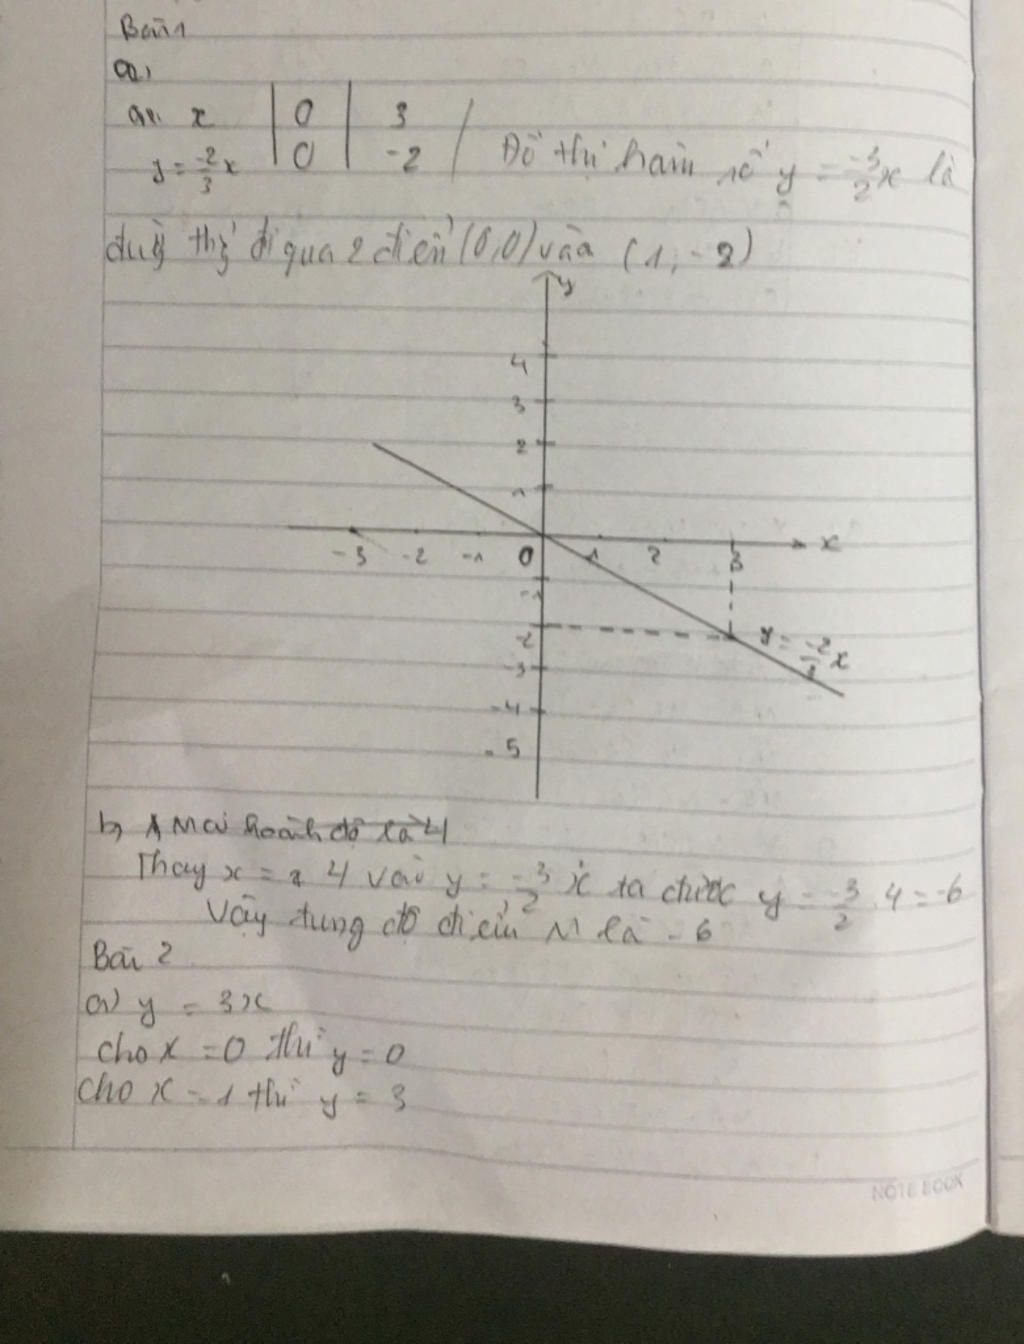 Bài 1
a,
x | 0 | 3
y = -2/3 x | 0 | -2 / Đồ thị hàm số y = -3/2 x là
đi qua 2 điển (0,0) vàa (1, -2)
y
4
3
2
1
-3 -2 -1 0 1 2 3 x
-1
-2
y = -2/3 x
-3
-4
-5
b, M có hoành độ là 4
Thay x = 4 vào y = -3/2 x ta được y = -3/2 . 4 = -6
Vậy tung độ điểm M là -6
Bài 2
a) y = 3x
cho x = 0 thì y = 0
cho x = 1 thì y = 3
NOTE BOOK